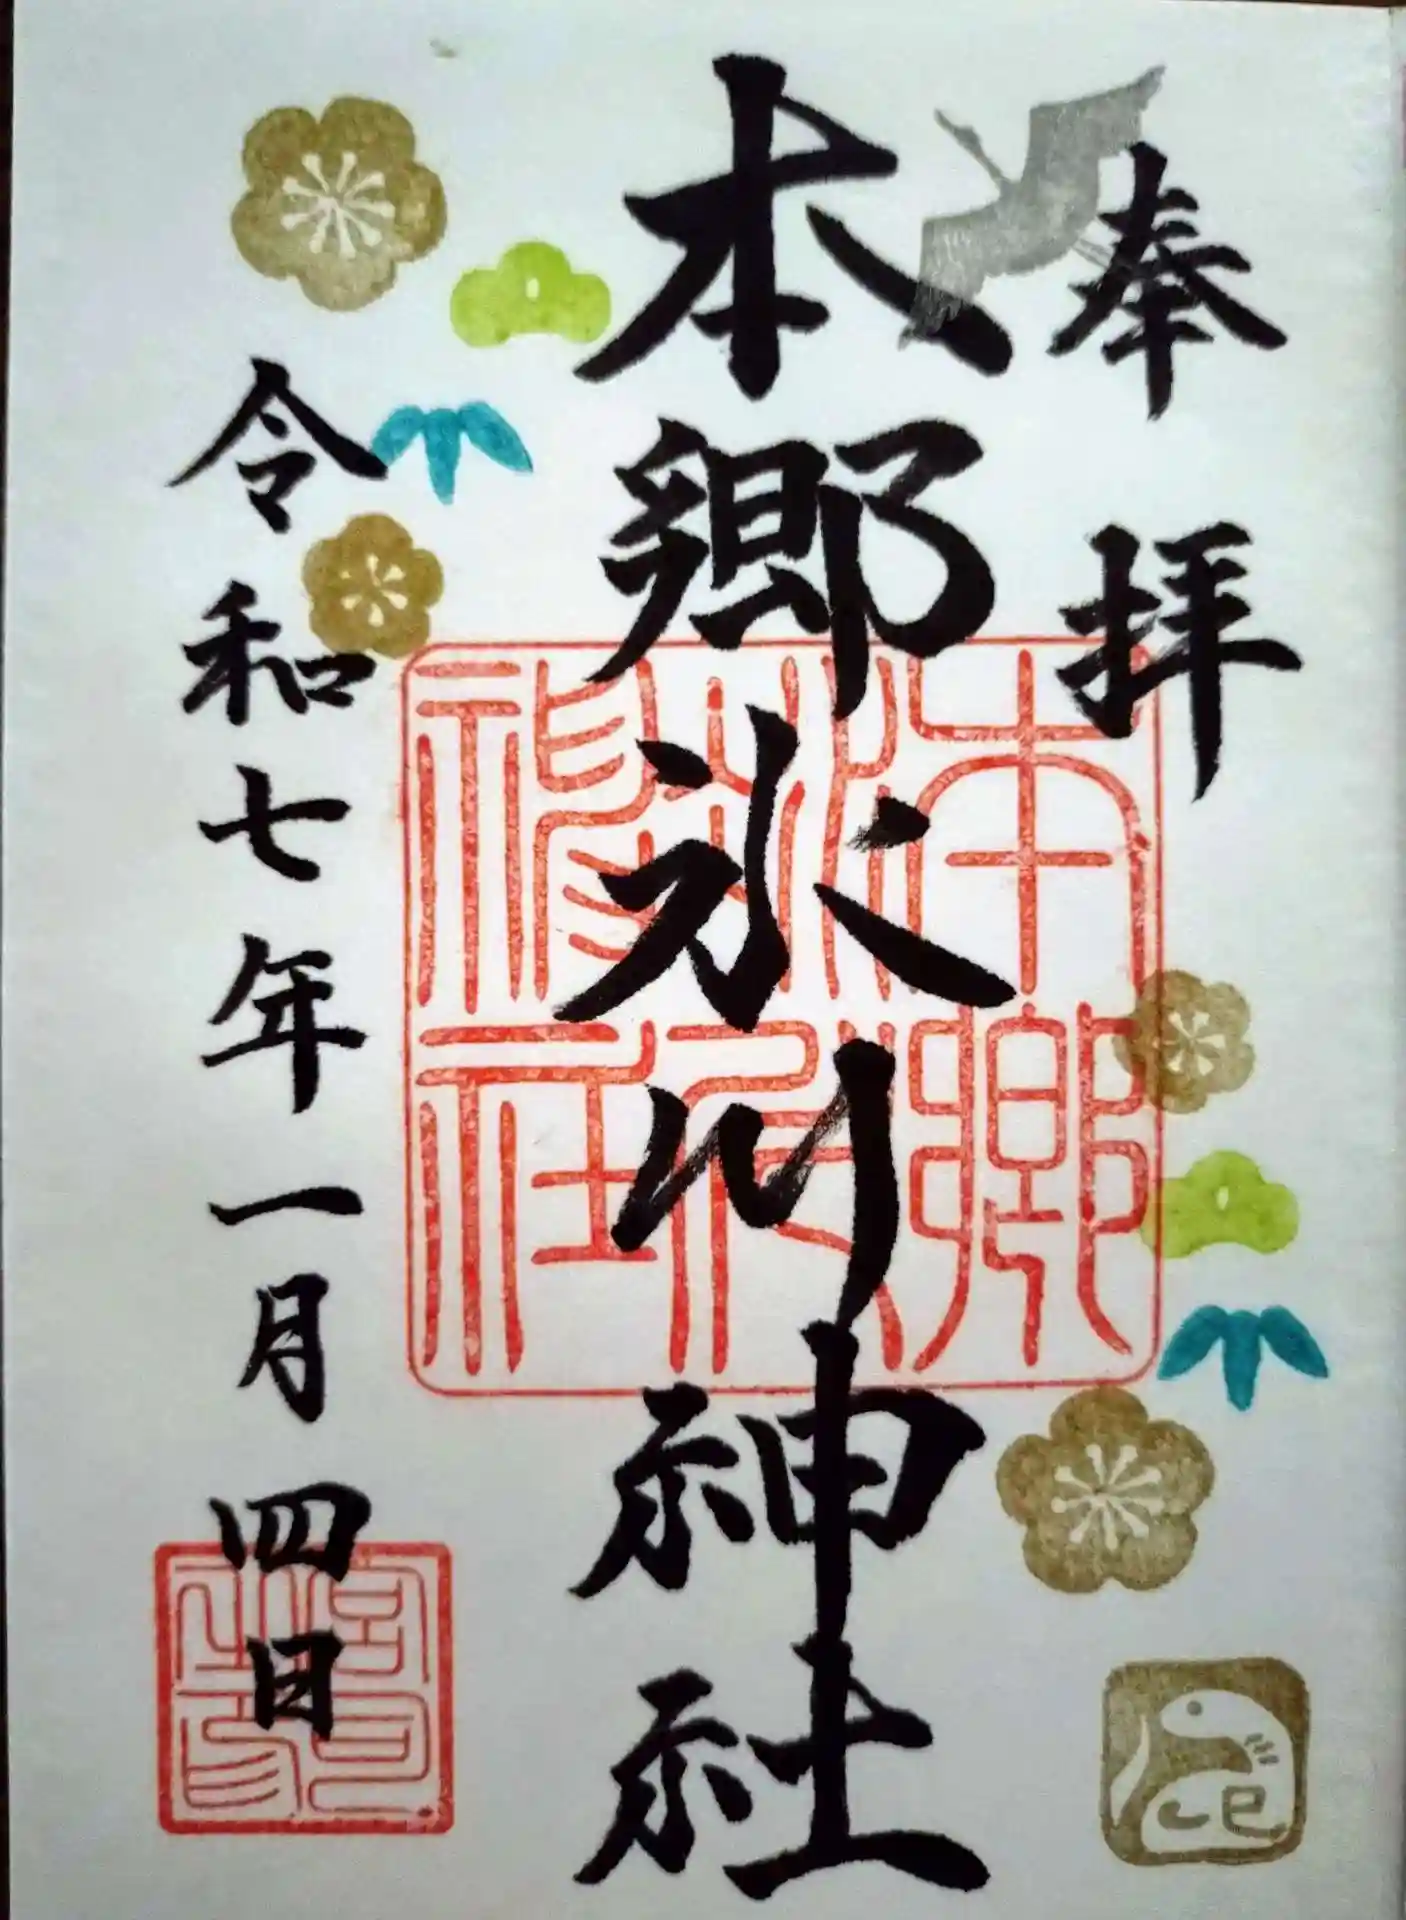 奉拝
本郷氷川神社
令和七年一月四日
本郷
氷川
神社
巳